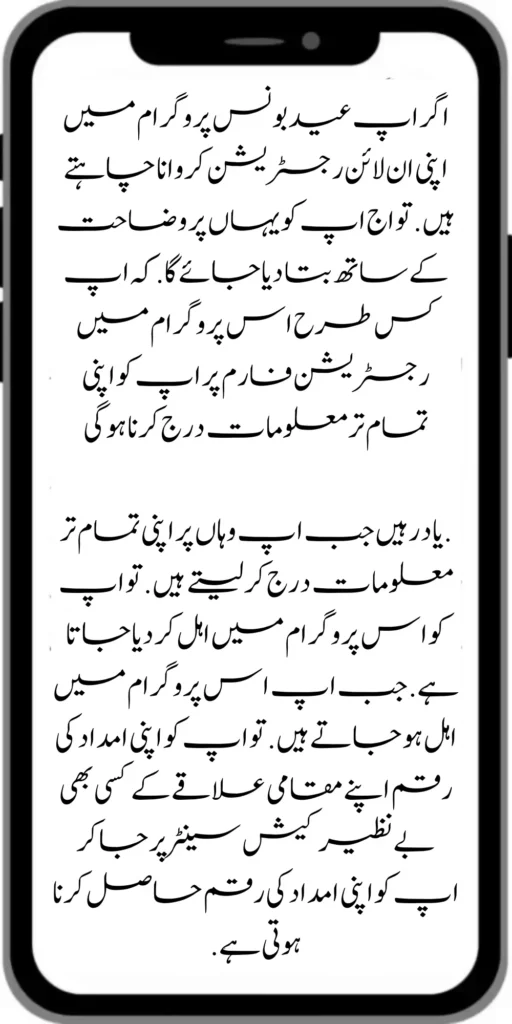 اگر اپ عید بونس پروگرام میں
اپنی ان لائن رجسٹریشن کروانا چاہتے
ہیں. تو اج اپ کو یہاں پر وضاحت
کے ساتھ بتا دیا جائے گا. کہ اپ
کس طرح اس پروگرام میں
رجسٹریشن فارم پر اپ کو اپنی
تمام تر معلومات درج کرنا ہوگی
.یاد رہیں جب اپ وہاں پر اپنی تمام تر
معلومات درج کر لیتے ہیں. تو اپ
کو اس پروگرام میں اہل کر دیا جاتا
ہے. جب اپ اس پروگرام میں
اہل ہو جاتے ہیں. تو اپ کو اپنی امداد کی
رقم اپنے مقامی علاقے کے کسی بھی
بے نظیر کیش سینٹر پر جا کر
اپ کو اپنی امداد کی رقم حاصل کرنا
ہوتی ہے.